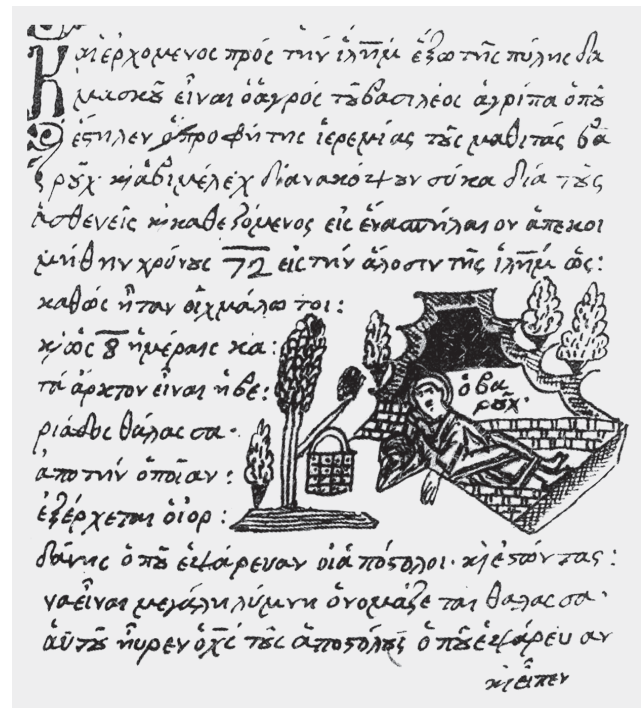 Καὶ ἐρχόμενος πρὸς τὴν ἰλῆμ ἔξω τῆς πύλης δα
μασκοῦ εἶναι ὁ ἀγρός τοῦ βασιλέος ἀγρίπα ὁποῦ
ἔςηλεν ὁ προφήτης ἱερεμίας τοὺς μαθιτάς βα
ροῦχ κὶ ἀβιμέλεχ διὰ νακόψουν σύκα διὰ τοὺς
ἀσθενεῖς κὶ καθεζόμενος εἰς ἕνα σπήλαιον ἀπεκοι
μήθην χρόνους 72 εἰς τὴν ἅλοσιν τῆς ἰλῆμ ὡς:
καθὼς ἦταν οἱ χμάλωτοι:
κὶ ὡς 8 ἡμέραις κα:
τὰ ἄρκτον εἶναι ἡ βε:
ριάδος θάλασσα·
ἀπο τὴν ὁποῖαν:
ἐξέρχεται ὁ ἰορ:
δάνης ὁποῦ ἐψάρευαν οἱ ἀπόςολοι· κὶ ἐςῶντας:
να εἶναι μεγάλη λύμνη ὀνομάζεται θαλασσα·
αὐτοῦ ηὗρεν ὁ χς τοὺς ἀποςόλους ὁποῦ ἐψάρευαν
κὶ εἶπεν
ὁ βα
ροῦχ·